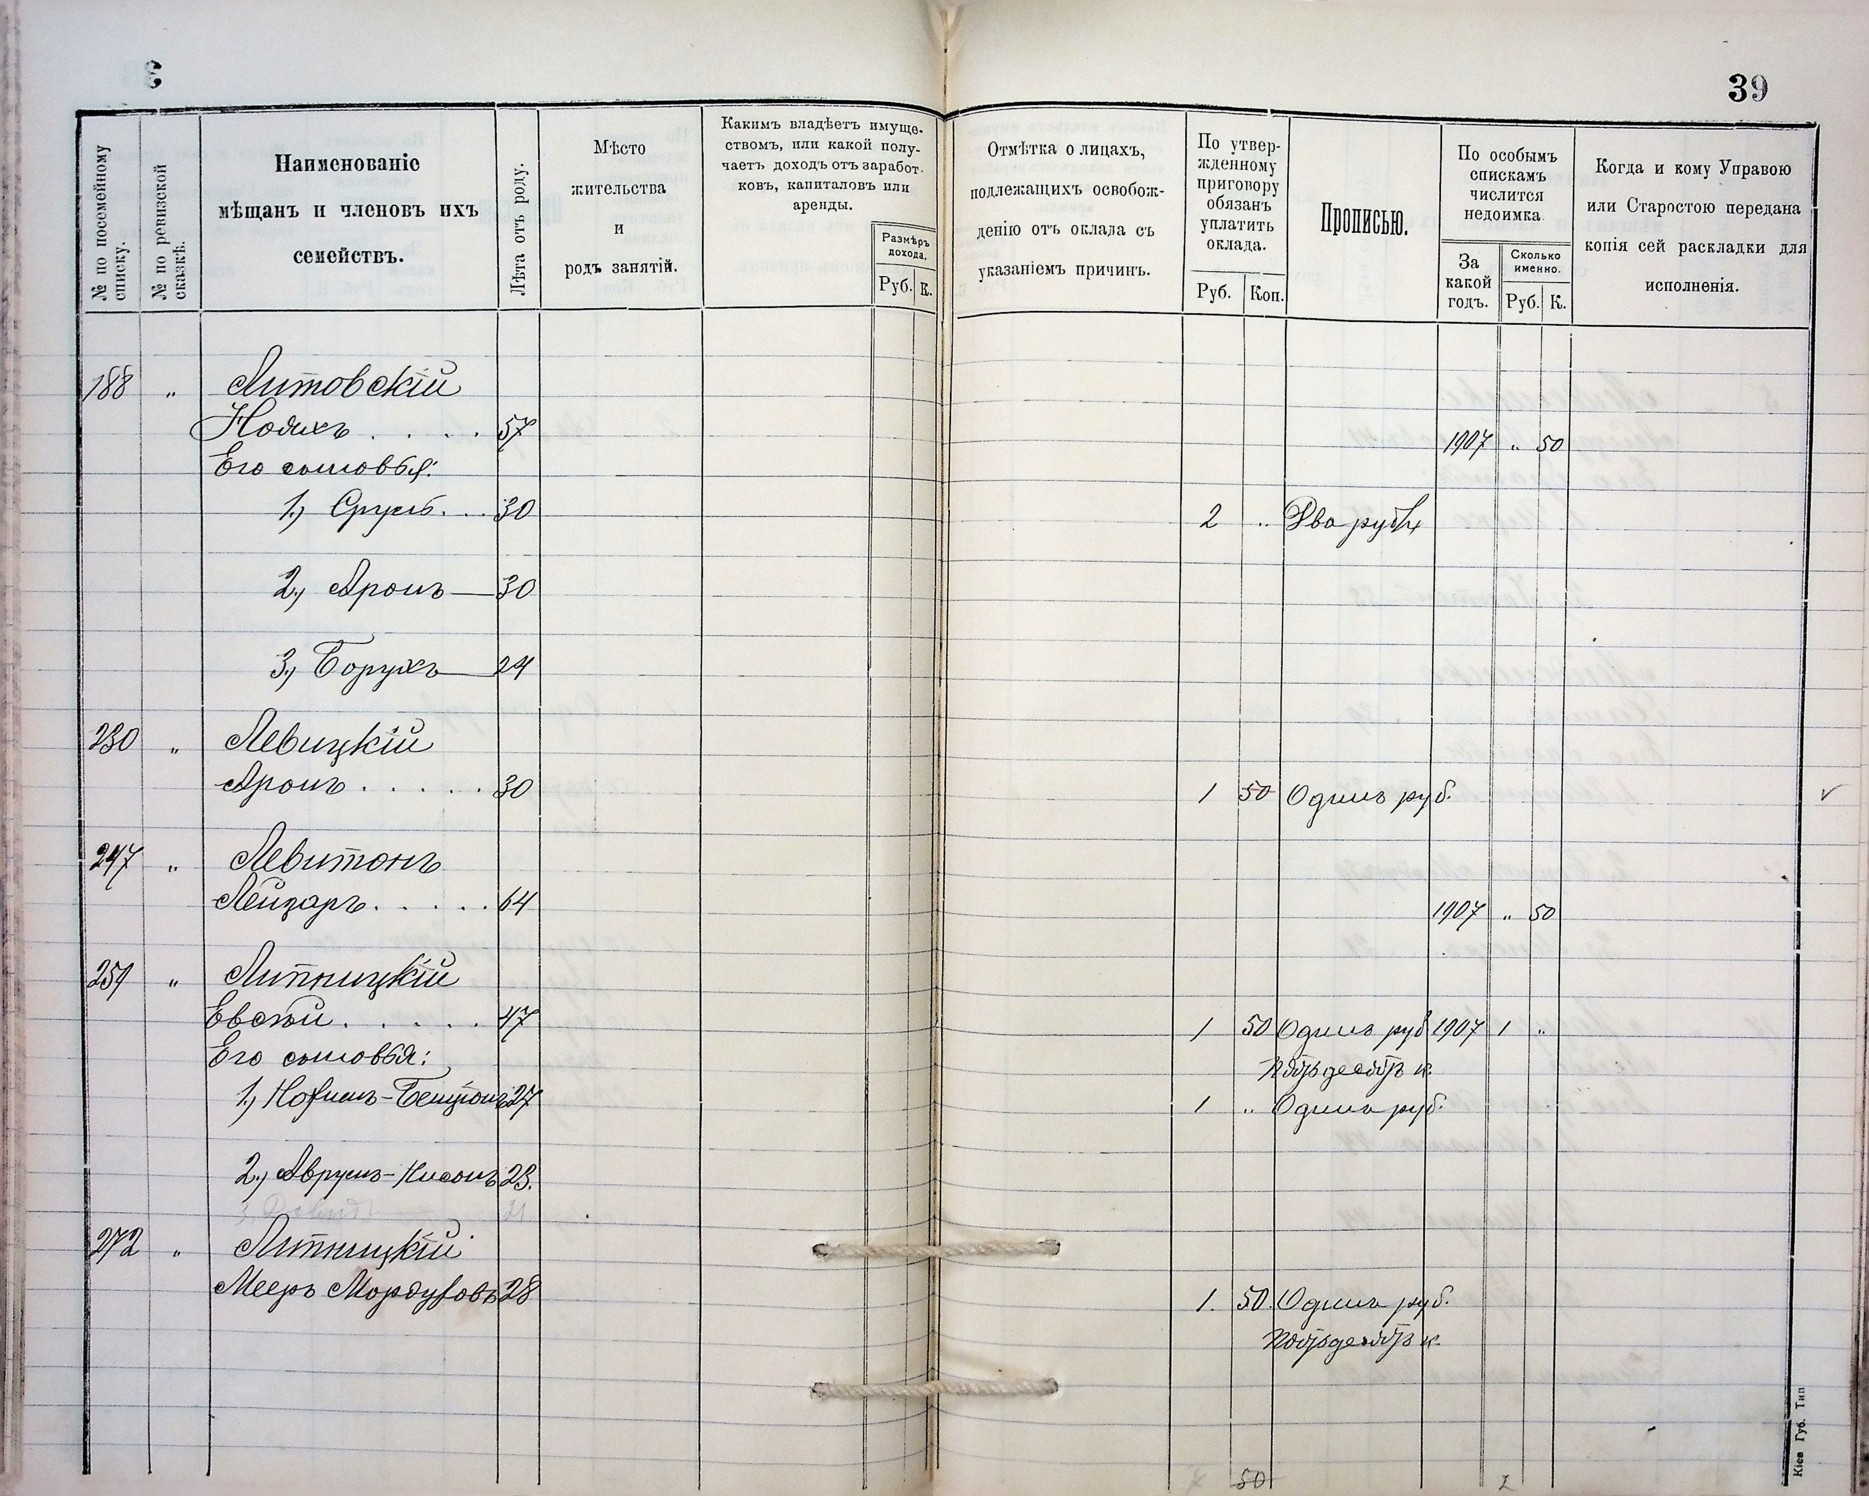 39
№ по посемейному списку.
№ по ревизской сказкѣ.
Наименованіе
мѣщанъ и членовъ ихъ
семействъ.
Лѣта отъ роду.
Мѣсто
жительства
и
родъ занятій.
Какимъ владѣетъ имуще-
ствомъ, или какой полу-
чаетъ доходъ отъ заработ-
ковъ, капиталовъ или
аренды.
Размѣръ
дохода.
Руб. К.
Отмѣтка о лицахъ,
подлежащихъ освобож-
денію отъ оклада съ
указаніемъ причинъ.
По утвер-
жденному
приговору
обязанъ
уплатить
оклада.
Руб. Коп.
Прописью.
По особымъ
спискамъ
числится
недоимка
За
какой
годъ.
Сколько
именно.
Руб. К.
Когда и кому Управою
или Старостою передана
копія сей раскладки для
исполненія.
188 „ Литовскій
Ноахъ . . . . 57 1907 „ 50
Его сыновья:
1) Сруль . . . 30 2 „ Два рубля
2) Аронъ — 30
3) Борухъ — 24
230 „ Левицкій
Аронъ . . . . . 30 1 50 Одинъ руб.
247 „ Левитонъ
Лейзаръ . . . . . 64 1907 „ 50
259 „ Липницкій
Евсей . . . . . 47 1 50 Одинъ руб 1907 1 „
Его сыновья: Пятьдесятъ к.
1) Нохимъ-Бенціонъ 27 1 „ Одинъ руб.
2) Аврумъ-Нисонъ 23.
3 Давидъ 21
272 „ Липницкій
Мееръ Мордуховъ 28 1. 50. Одинъ руб.
Пятьдесятъ к.
50 2
Кіев Губ. Тип